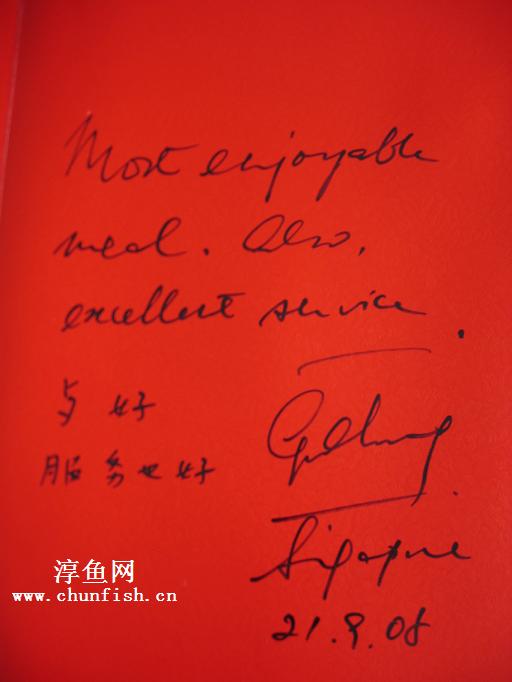 Most enjoyable
meal. Also,
excellent service.
好
服务也好
Singapore
21.9.08
淳鱼网
www.chunfish.cn